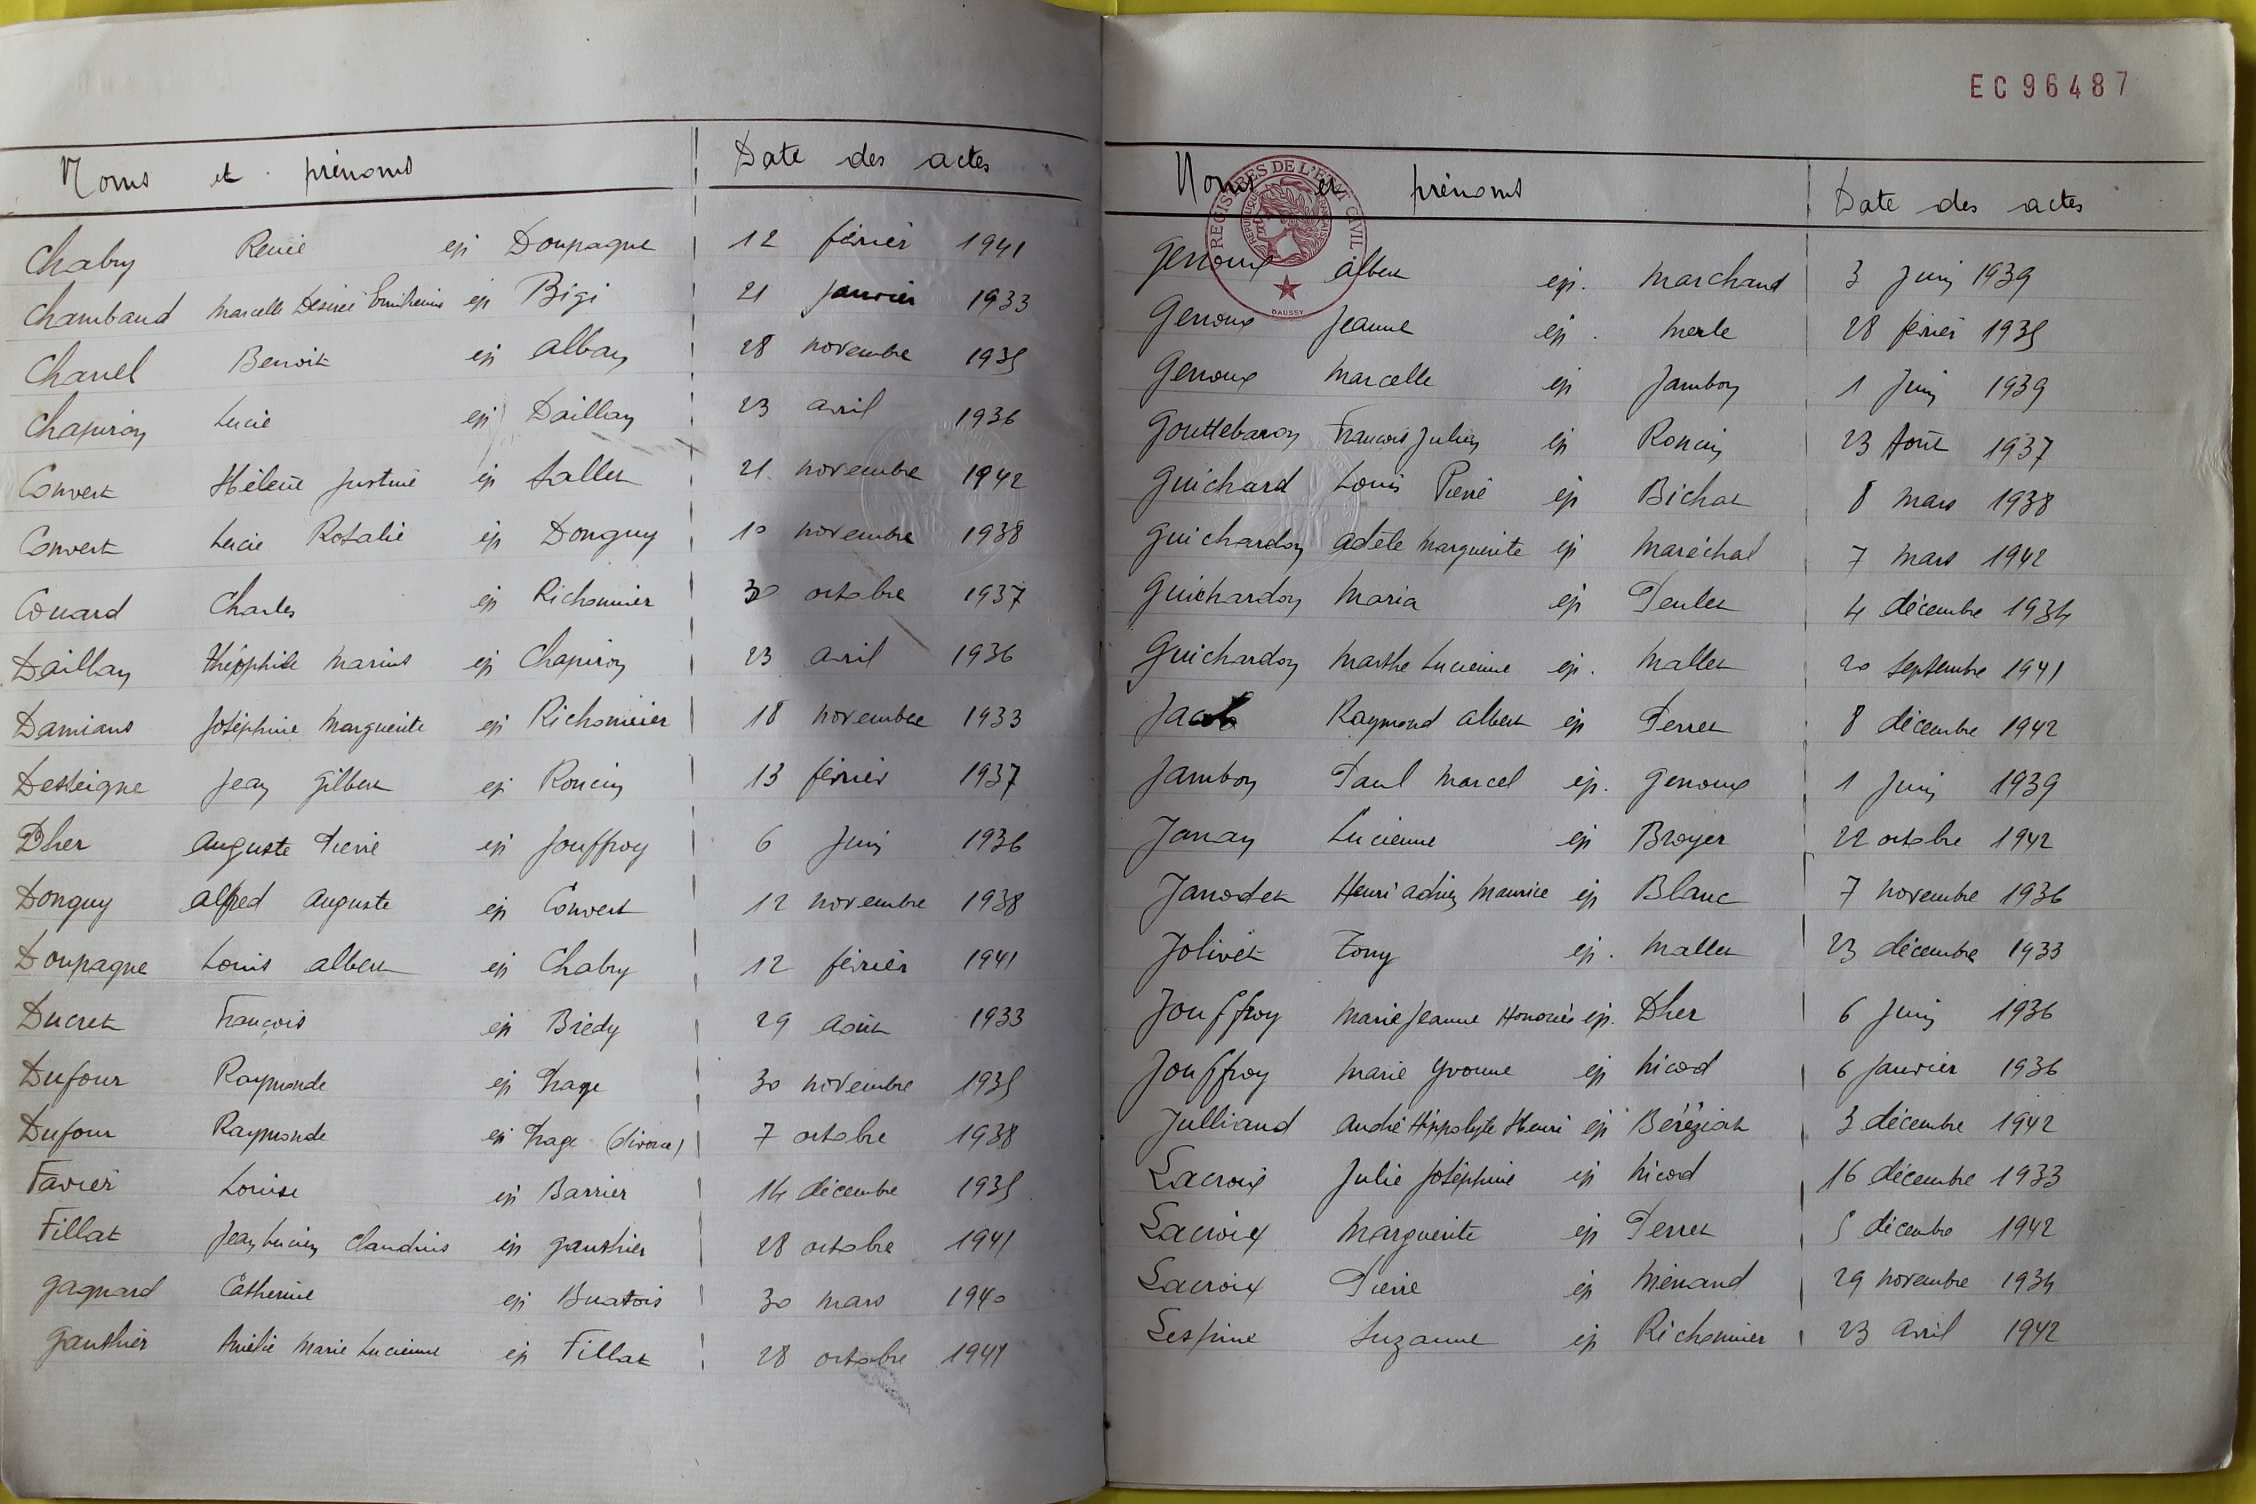 Noms et prénoms Date des actes
Chabry Renée ep Doupagne 12 février 1941
Chambaud Marcelle Désirée ep Bigi 21 Janvier 1933
Chanel Benoit ep Alban 28 novembre 1935
Chapiron Lucie ep Daillan 23 avril 1936
Convert Hélène Justine ep Sallet 21 novembre 1942
Convert Lucie Rosalie ep Donguy 10 novembre 1938
Couard Charles ep Richonnier 30 octobre 1937
Daillan théophile marius ep Chapiron 23 avril 1936
Damians Joséphine Marguerite ep Richonnier 18 novembre 1933
Desseigne Jean Gilbert ep Roncin 13 février 1937
Dher Auguste Pierre ep Jouffroy 6 Juin 1936
Donguy Alfred Auguste ep Convert 12 novembre 1938
Doupagne Louis Albert ep Chabry 12 février 1941
Ducret François ep Brédy 29 Août 1933
Dufour Raymonde ep Trage 30 novembre 1935
Dufour Raymonde ep Trage (divorce) 7 octobre 1938
Favier Louise ep Barrier 14 décembre 1935
Fillat Jean Lucien Claudius ep Gauthier 28 octobre 1941
Gagnard Catherine ep Buatois 30 mars 1940
Gauthier Amélie Marie Lucienne ep Fillat 28 octobre 1941
EC96487
Noms et prénoms Date des actes
REGISTRES DE L'ETAT CIVIL
REPUBLIQUE FRANCAISE
DAUSSY
Genoux Albert ep. Marchand 3 Juin 1939
Genoux Jeanne ep. Merle 28 février 1935
Genoux Marcelle ep Jambon 1 Juin 1939
Gouttebaron François Julien ep Roncin 23 Août 1937
Guichard Louis Pierre ep Bichat 8 mars 1938
Guichardon Adèle Marguerite ep Maréchal 7 mars 1942
Guichardon Maria ep Peulet 4 décembre 1934
Guichardon Marthe Lucienne ep. Mallet 20 septembre 1941
Jacob Raymond Albert ep Perret 8 décembre 1942
Jambon Paul Marcel ep. Genoux 1 Juin 1939
Janan Lucienne ep Broyer 22 octobre 1942
Janodet Henri Adrien Maurice ep Blanc 7 novembre 1936
Jolivet Tony ep. Mallet 23 décembre 1933
Jouffroy Marie Jeanne Honorée ep. Dher 6 Juin 1936
Jouffroy Marie Yvonne ep Nicod 6 Janvier 1936
Julliand André Hippolyte Henri ep Béréziat 3 décembre 1942
Lacroix Julie Joséphine ep Nicod 16 décembre 1933
Lacroix Marguerite ep Perret 5 décembre 1942
Lacroix Pierre ep Ménand 29 novembre 1934
Lespine Suzanne ep Richonnier 23 Avril 1942